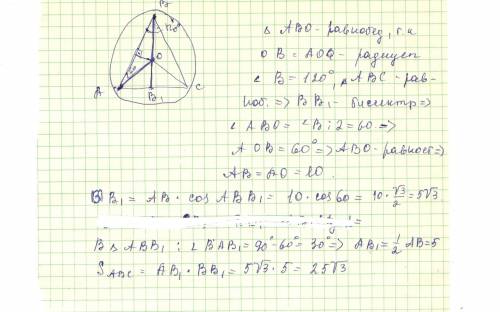 B
120°
R
O
A
B₁
C
Δ ABO - равнобед, т.к
OB = AO - радиусы
∠ B = 120°, ΔABC - рав-
ноб. => BB₁ - биссектр =>
∠ ABO = ∠B:2 = 60 =>
AOB = 60° => ABO - равност =>
AB = AO = 10.
BB₁ = AB · cos ABB₁ = 10 · cos 60 = 10 · √3/2 = 5√3
В Δ ABB₁ : ∠ BAB₁ = 90° - 60° = 30° => AB₁ = 1/2 AB = 5
S ABC = AB₁ · BB₁ = 5√3 · 5 = 25√3